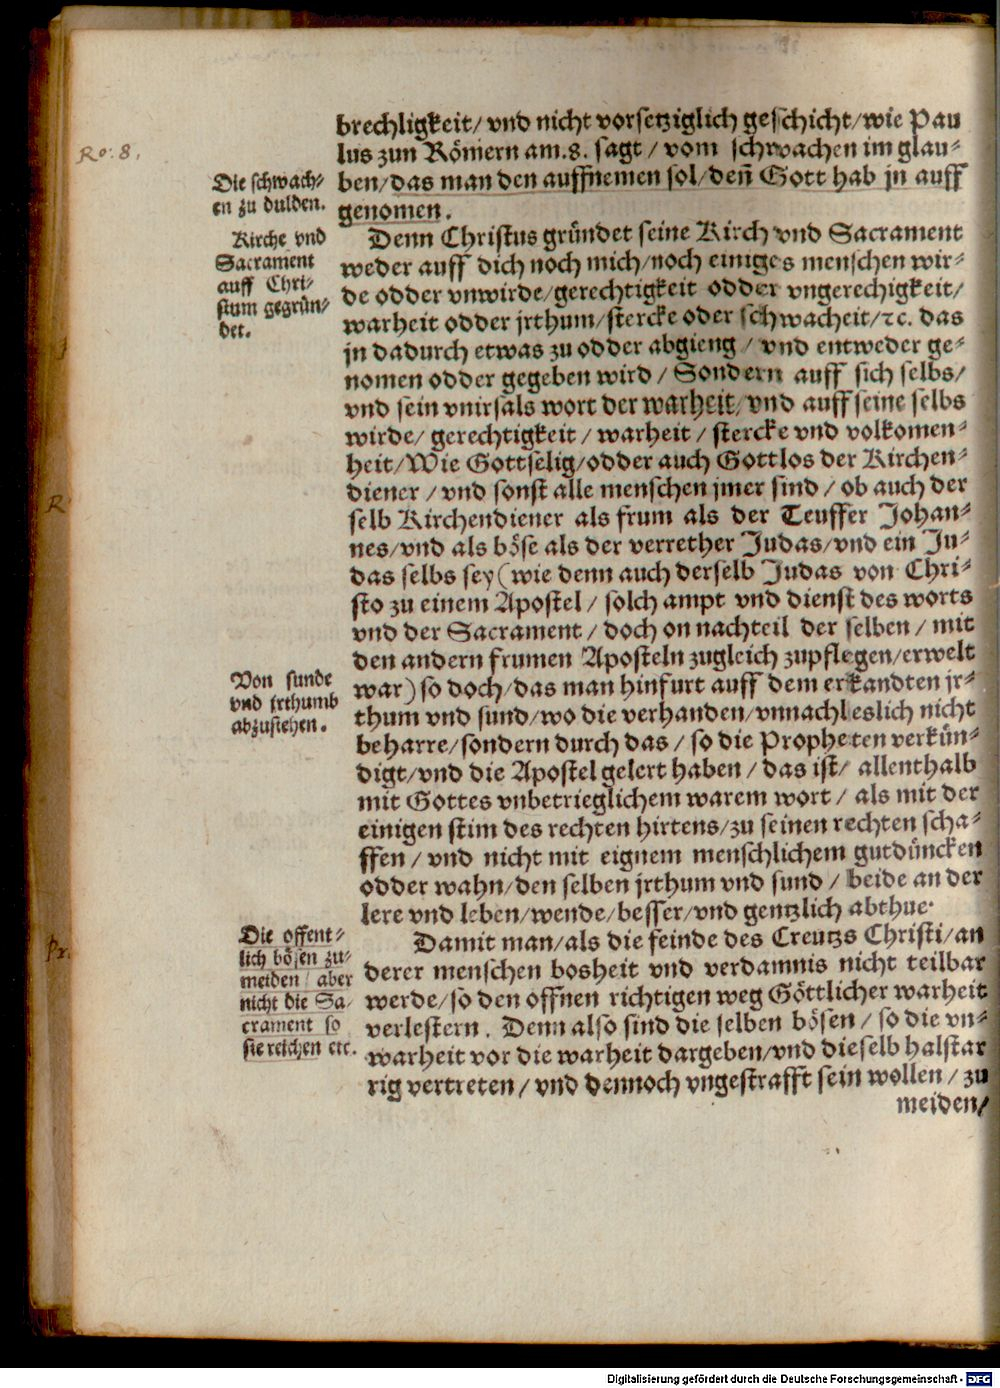 Ro. 8.
Die schwach⸗
en zu dulden.
Kirche vnd
Sacrament
auff Chri⸗
stum gegrün⸗
det.
brechligkeit/ vnd nicht vorsetziglich geschicht/wie Pau
lus zun Römern am.8. sagt / vom schwachen im glau⸗
ben/das man den auffnemen sol/deñ Gott hab jn auff
genomen.
Denn Christus gründet seine Kirch vnd Sacrament
weder auff dich noch mich/noch einiges menschen wir⸗
de odder vnwirde/gerechtigkeit odder vngerechigkeit/
warheit odder jrthum/stercke oder schwacheit/ꝛc. das
jn dadurch etwas zu odder abgieng / vnd entweder ge⸗
nomen odder gegeben wird / Sondern auff sich selbs/
vnd sein vnirsals wort der warheit/vnd auff seine selbs
wirde/ gerechtigkeit / warheit / stercke vnd volkomen⸗
heit/Wie Gottselig/odder auch Gottlos der Kirchen⸗
diener / vnd sonst alle menschen jmer sind / ob auch der
selb Kirchendiener als frum als der Teuffer Johan⸗
nes/vnd als böse als der verrether Judas/vnd ein Ju⸗
das selbs sey (wie denn auch derselb Judas von Chri⸗
sto zu einem Apostel / solch ampt vnd dienst des worts
vnd der Sacrament / doch on nachteil der selben / mit
den andern frumen Aposteln zugleich zupflegen/erwelt
war) so doch/das man hinfurt auff dem erkandten jr⸗
thum vnd sund/wo die verhanden/vnnachleslich nicht
beharre/sondern durch das / so die Propheten verkün⸗
digt/vnd die Apostel gelert haben / das ist/ allenthalb
mit Gottes vnbetrieglichem warem wort / als mit der
einigen stim des rechten hirtens/zu seinen rechten scha⸗
ffen / vnd nicht mit eignem menschlichem gutdüncken
odder wahn/den selben jrthum vnd sund / beide an der
lere vnd leben/wende/besser/vnd gentzlich abthue.
Von sunde
vnd jrthumb
abzustehen.
Damit man/als die feinde des Creutzs Christi/an
derer menschen bosheit vnd verdamnis nicht teilbar
werde/so den offnen richtigen weg Göttlicher warheit
verlestern. Denn also sind die selben bösen / so die vn⸗
warheit vor die warheit dargeben/vnd dieselb halstar
rig vertreten / vnd dennoch vngestrafft sein wollen / zu
meiden/
Die offent⸗
lich bösen zu⸗
meiden / aber
nicht die Sa⸗
crament so
sie reichen etc.
Digitalisierung gefördert durch die Deutsche Forschungsgemeinschaft - DFG